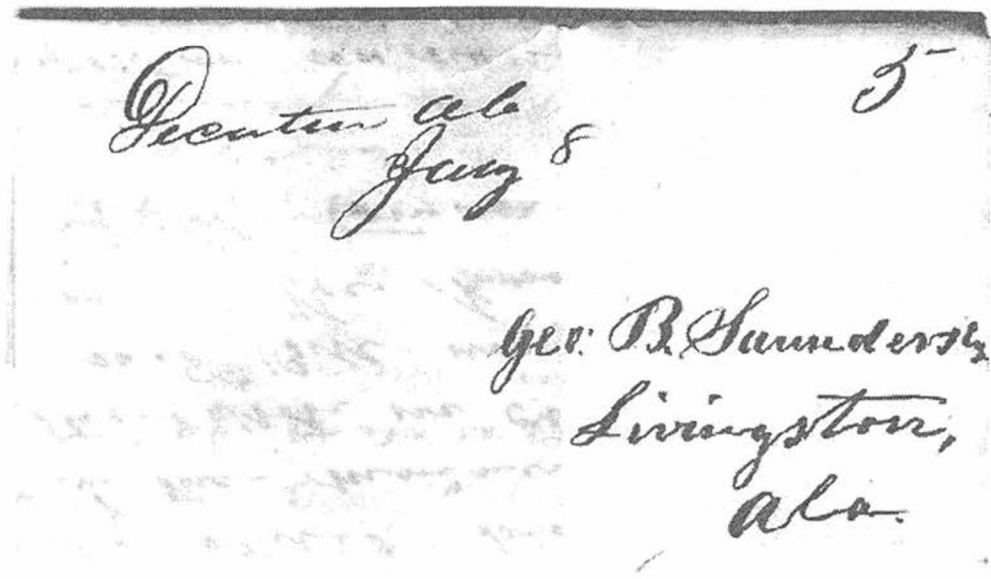 Decatur Ala 5
Jany 8
Geo: B. Saunders Esq
Livingston,
Ala.